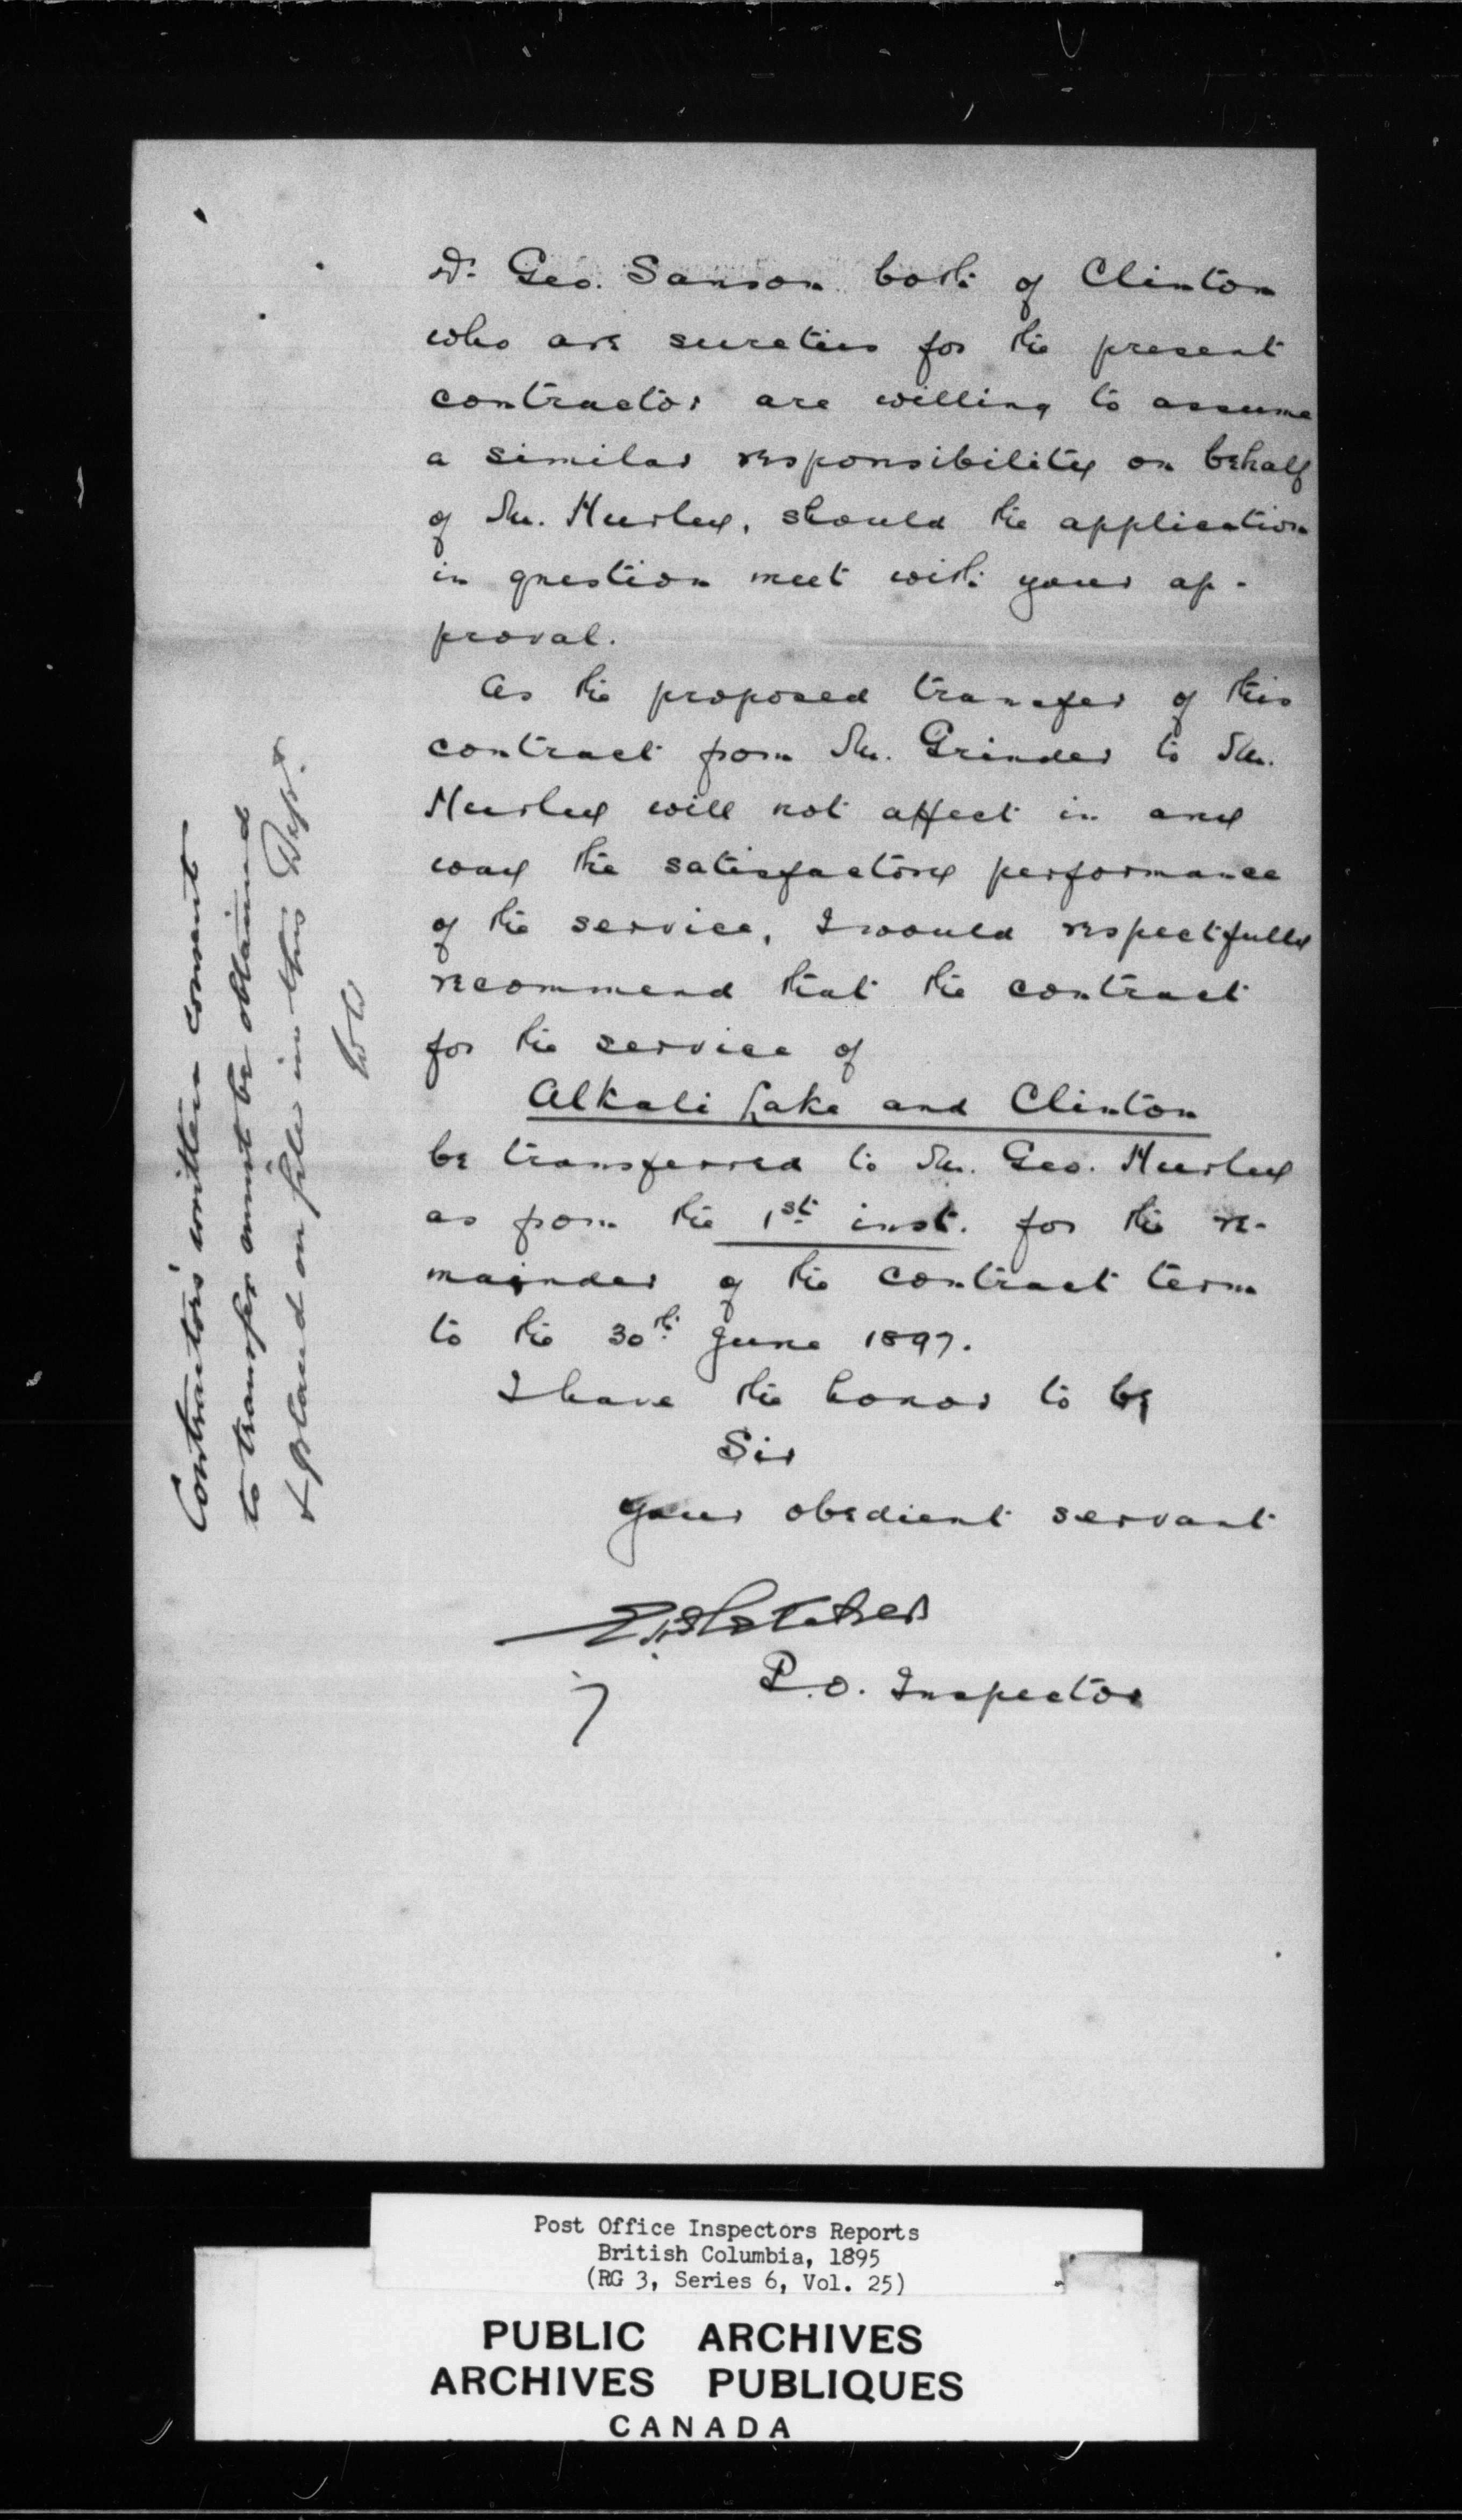 Dr. Geo. Sanson both of Clinton
who are sureties for the present
contractor are willing to assume
a similar responsibility on behalf
of Mr. Hurley, should the application
in question meet with your ap-
proval.
As the proposed transfer of this
contract from Mr. Grinder to Mr.
Hurley will not affect in any
way the satisfactory performance
of the service, I would respectfully
recommend that the contract
for the service of
Alkali Lake and Clinton
be transferred to Mr. Geo. Hurley
as from the 1st inst. for the re-
mainder of the contract term
to the 30th June 1897.
I have the honor to be
Sir
your obedient servant
P.O. Inspector
Contractors' written consent
to transfer must be obtained
& placed on file in this Dept.
Post Office Inspectors Reports
British Columbia, 1895
(RG 3, Series 6, Vol. 25)
PUBLIC ARCHIVES
ARCHIVES PUBLIQUES
CANADA